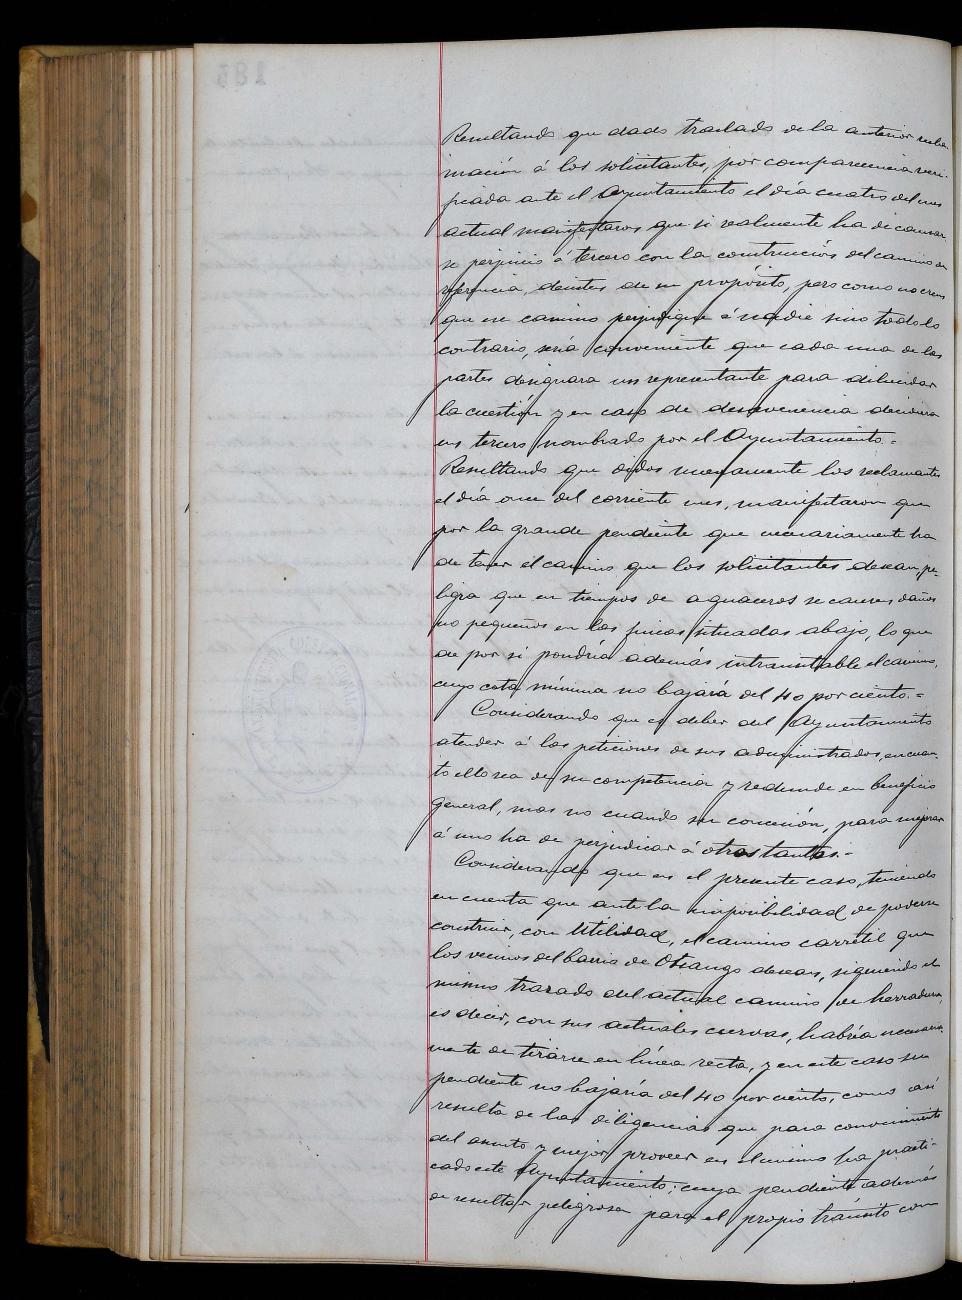 Resultando que dado traslado de la anterior recla-
mación á los solicitantes, por comparecencia veri-
ficada ante el Ayuntamiento el día cuatro del mes
actual manifestaron que si realmente ha de causar-
se perjuicio á tercero con la construcción del camino en
referencia, desisten de su propósito, pero como no creen
que ese camino perjudique á nadie sino todo lo
contrario, sería conveniente que cada una de las
partes designara un representante para dilucidar
la cuestión y en caso de desavenencia decidiera
un tercero nombrado por el Ayuntamiento.=
Resultando que oidos nuevamente los reclamantes
el día once del corriente mes, manifestaron que
por la grande pendiente que necesariamente ha
de tener el camino que los solicitantes desean, pe-
ligra que en tiempos de aguaceros se causen daños
no pequeños en las fincas situadas abajo, lo que
de por si pondría además intransitable el camino,
cuya cota mínima no bajará del 40 por ciento.=
Considerando que es deber del Ayuntamiento
atender á las peticiones de sus administrados, en cuan-
to ello sea de su competencia y redunde en beneficio
general, mas no cuando su concesión, para mejorar
á uno ha de perjudicar á otros tantos.=
Considerando que en el presente caso, teniendo
en cuenta que ante la imposibilidad de poderse
construir, con utilidad, el camino carretil que
los vecinos del barrio de Otsango desean, siguiendo el
mismo trazado del actual camino de herradura,
es decir, con sus actuales curvas, habría necesaria-
mente de tirarse en línea recta, y en este caso su
pendiente no bajaría del 40 por ciento, como así
resulta de las diligencias que para conocimiento
del asunto y mejor proveer en el mismo ha practi-
cado este Ayuntamiento; cuya pendiente además
de resultar peligrosa para el propio tránsito como